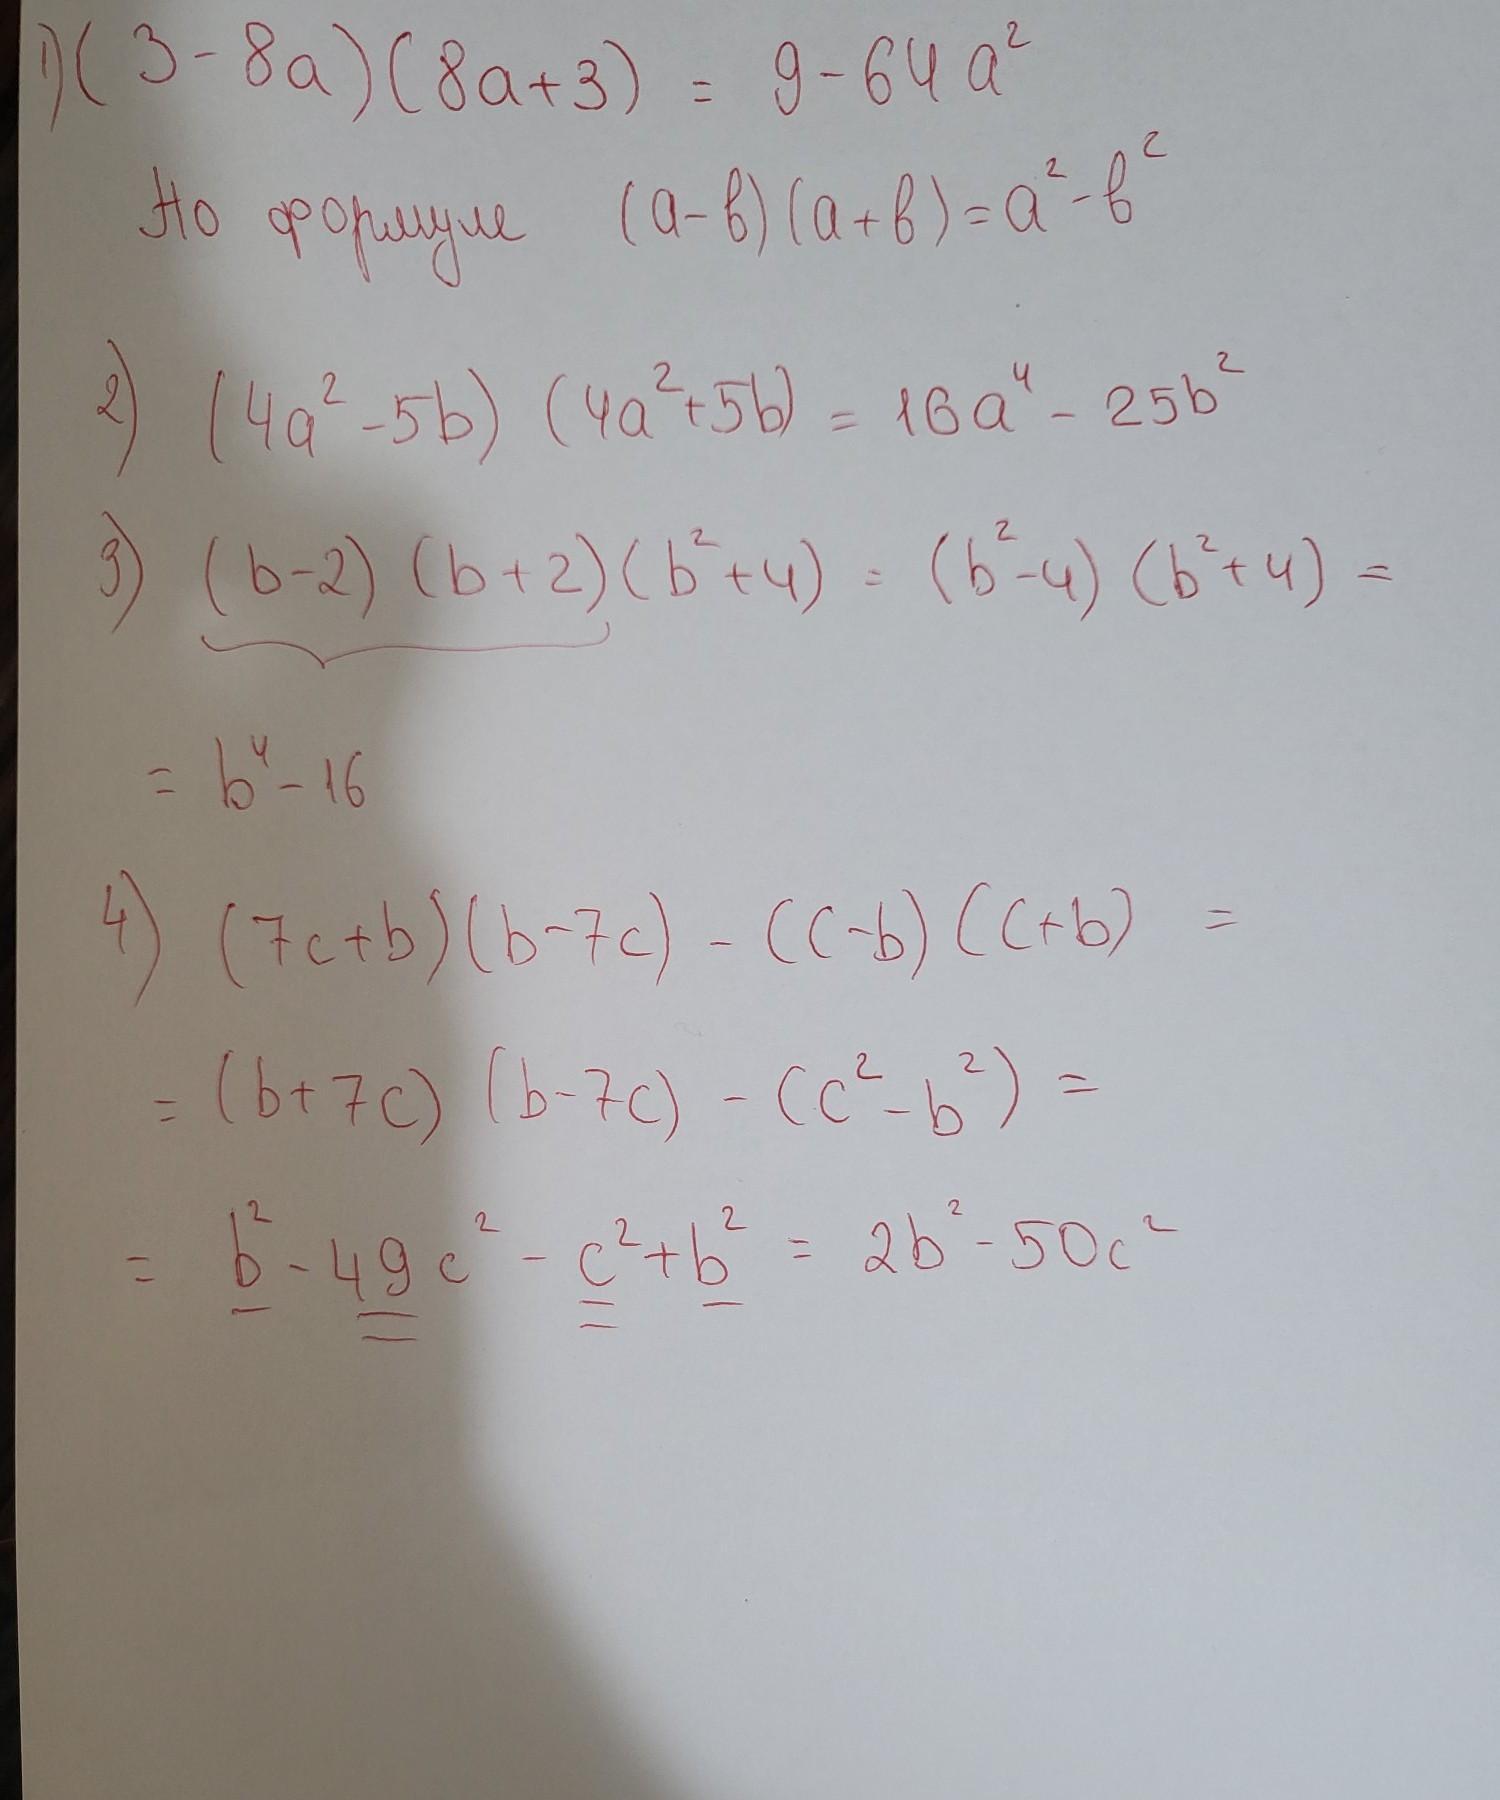 1) (3-8a)(8a+3) = 9-64a²
По формуле (a-в)(a+в)=a²-в²
2) (4a²-5b) (4a²+5b) = 16a⁴ - 25b²
3) (b-2) (b+2)(b²+4) = (b²-4) (b²+4) =
= b⁴-16
4) (7c+b)(b-7c) - (c-b) (c+b) =
= (b+7c) (b-7c) - (c²-b²) =
= b²-49c²-c²+b² = 2b²-50c²